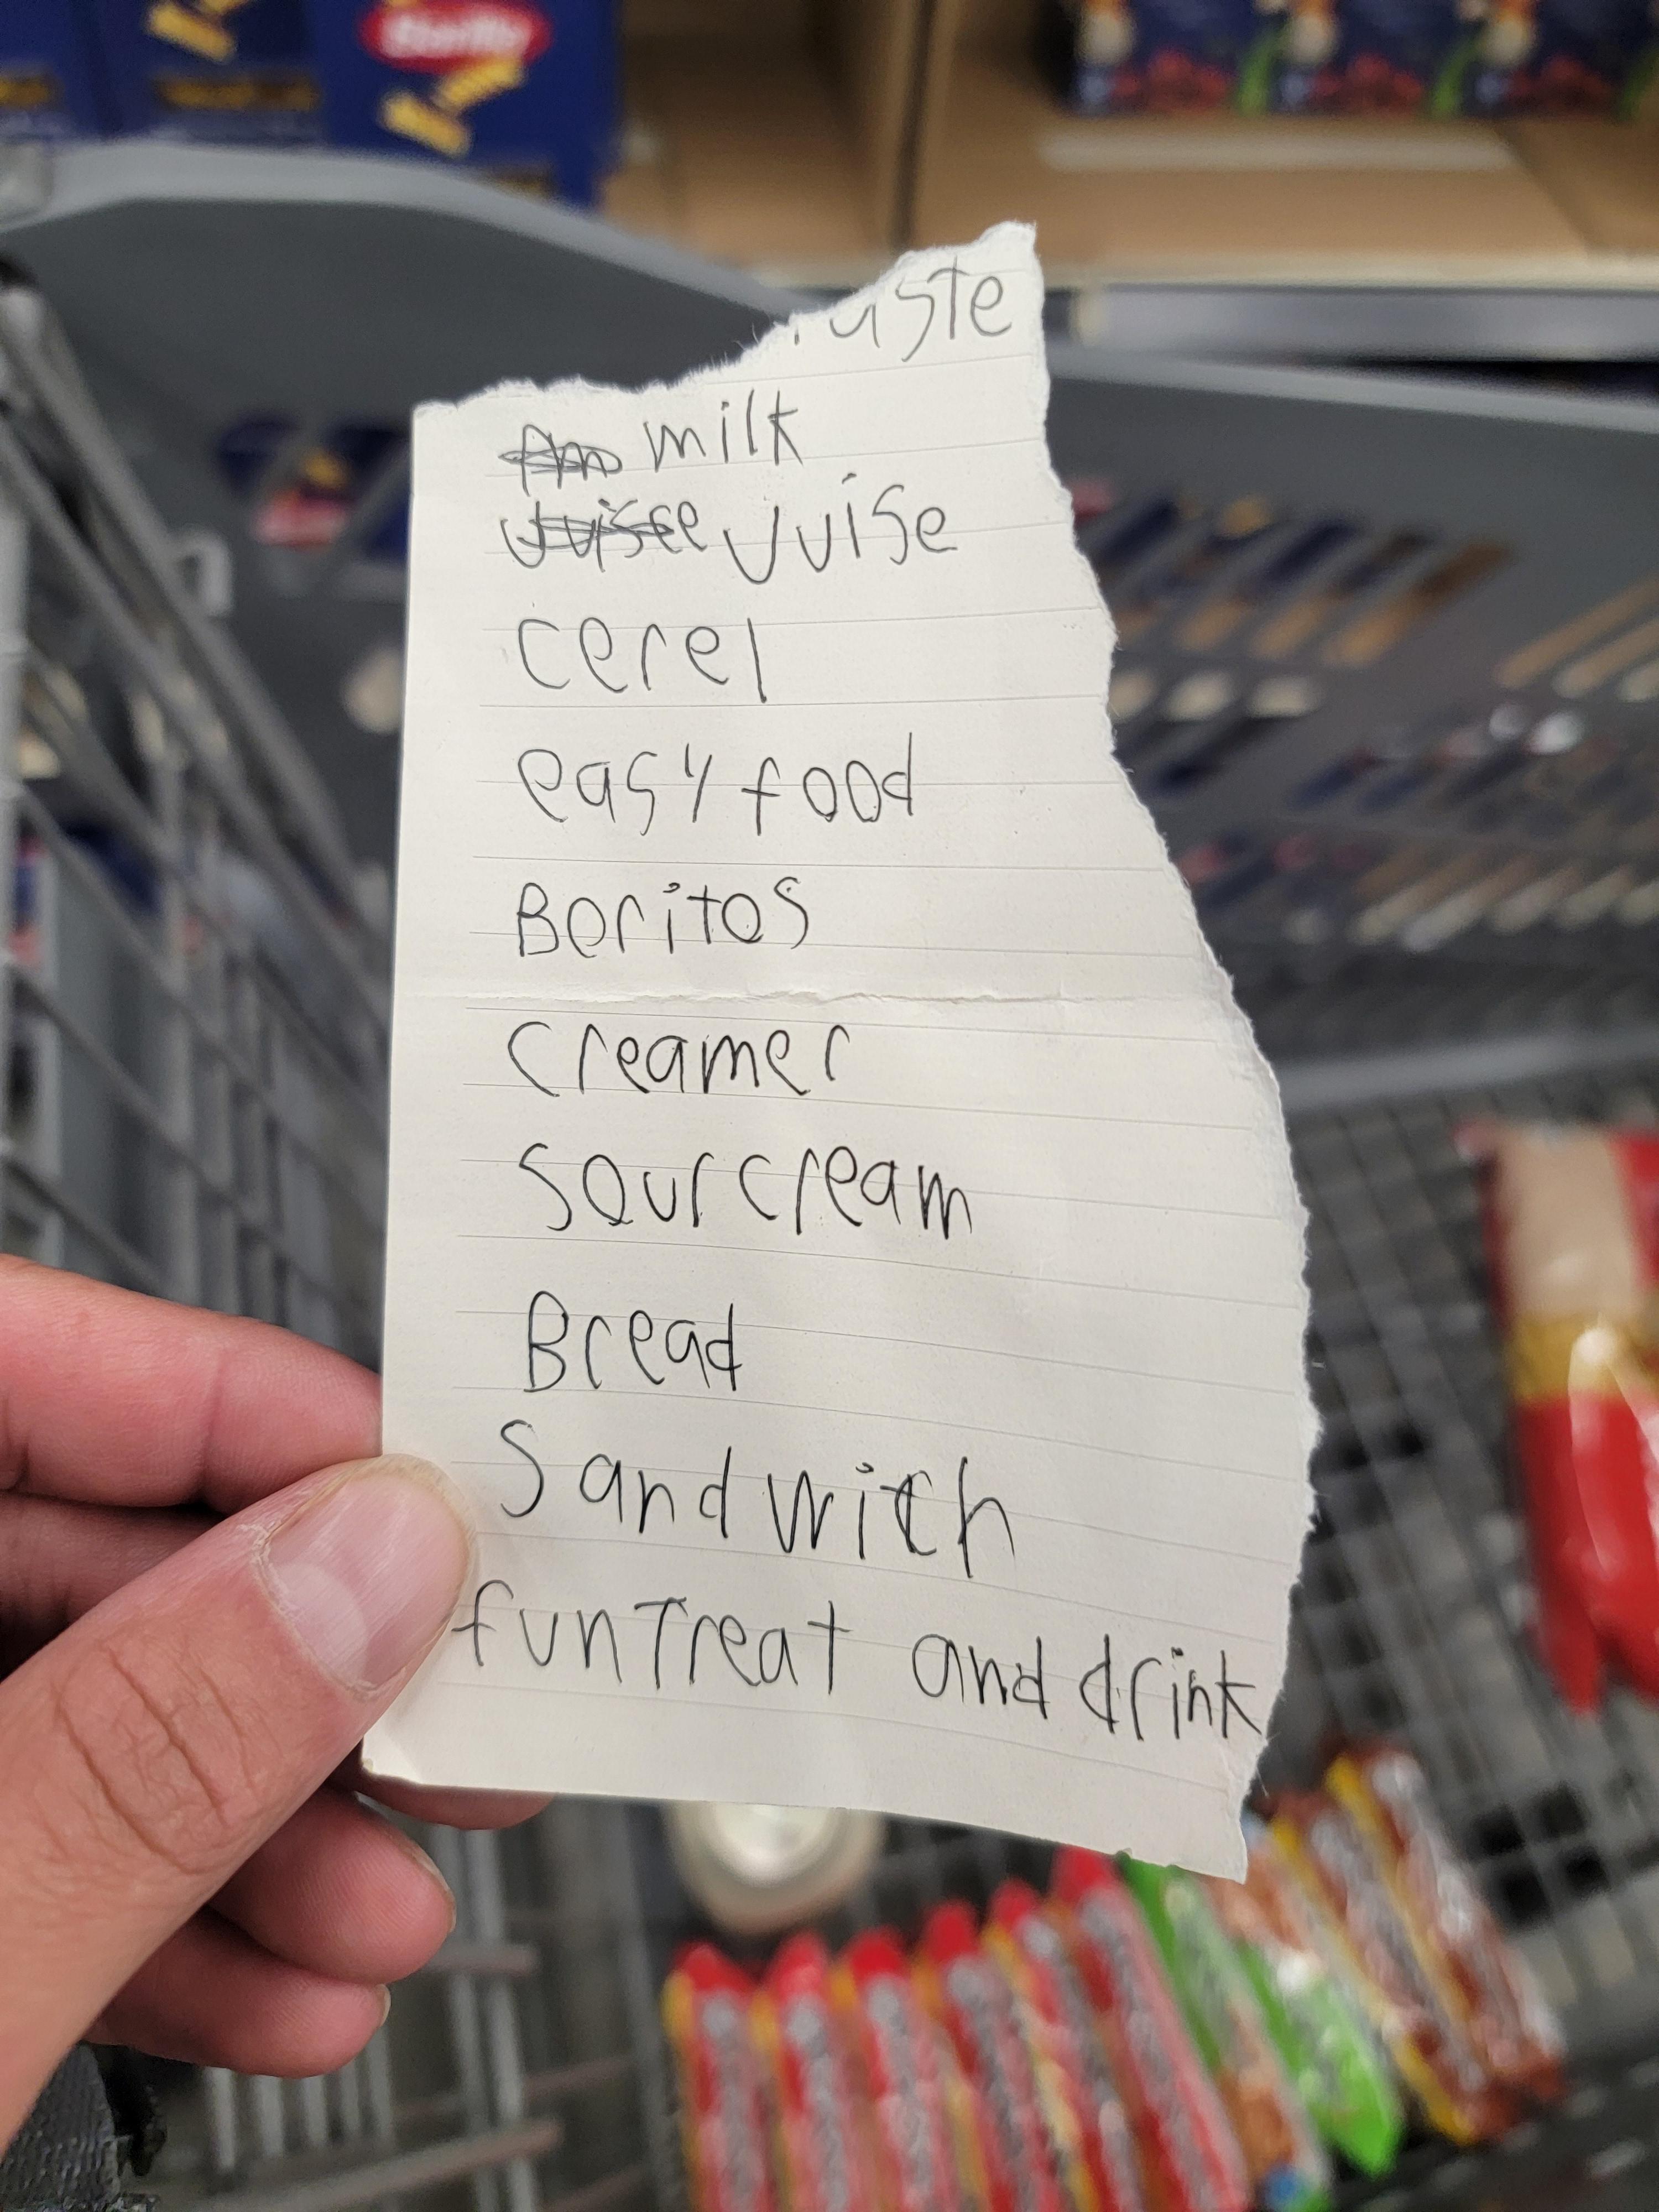 Barilla
aste
milk
Juisce Juise
cerel
easy food
Boritos
creamer
sour cream
Bread
Sandwich
fun Treat and drink